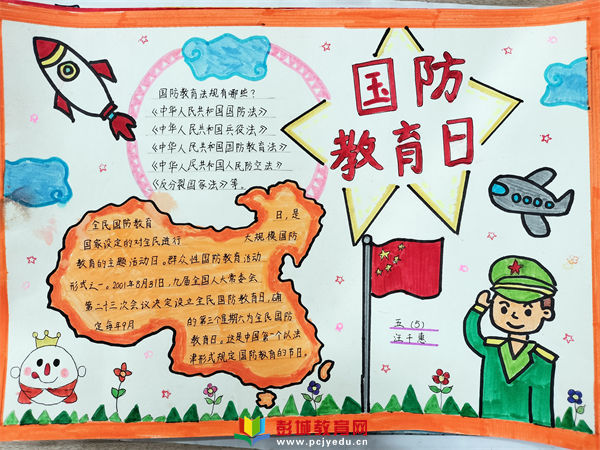 国防
教育日
国防教育法规有哪些？
《中华人民共和国国防法》
《中华人民共和国兵役法》
《中华人民共和国国防教育法》
《中华人民共和国人民防空法》
《反分裂国家法》等。
全民国防教育日，是
国家设定的对全民进行大规模国防
教育的主题活动日。群众性国防教育活动
形式之一。2001年8月31日，九届全国人大常委会
第二十三次会议决定设立全民国防教育日，确
定每年9月的第三个星期六为全民国防
教育日。这是中国第一个以法
律形式规定国防教育的节日。
五（5）
汪千惠
彭城教育网
www.pcjyedu.cn